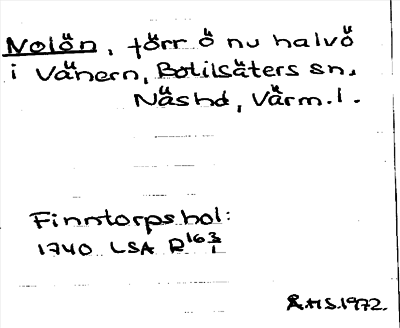 Nolön, förr ö nu halvö
i Vänern, Botilsäters sn,
Näshd, Värm.l.
Finntorpshol:
1740 LSA R 163/1
Å.H S.1972.